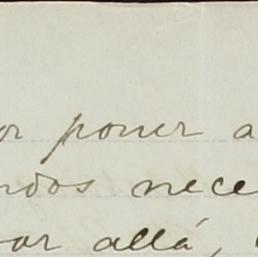 or poner a
ndos nece
or allá,